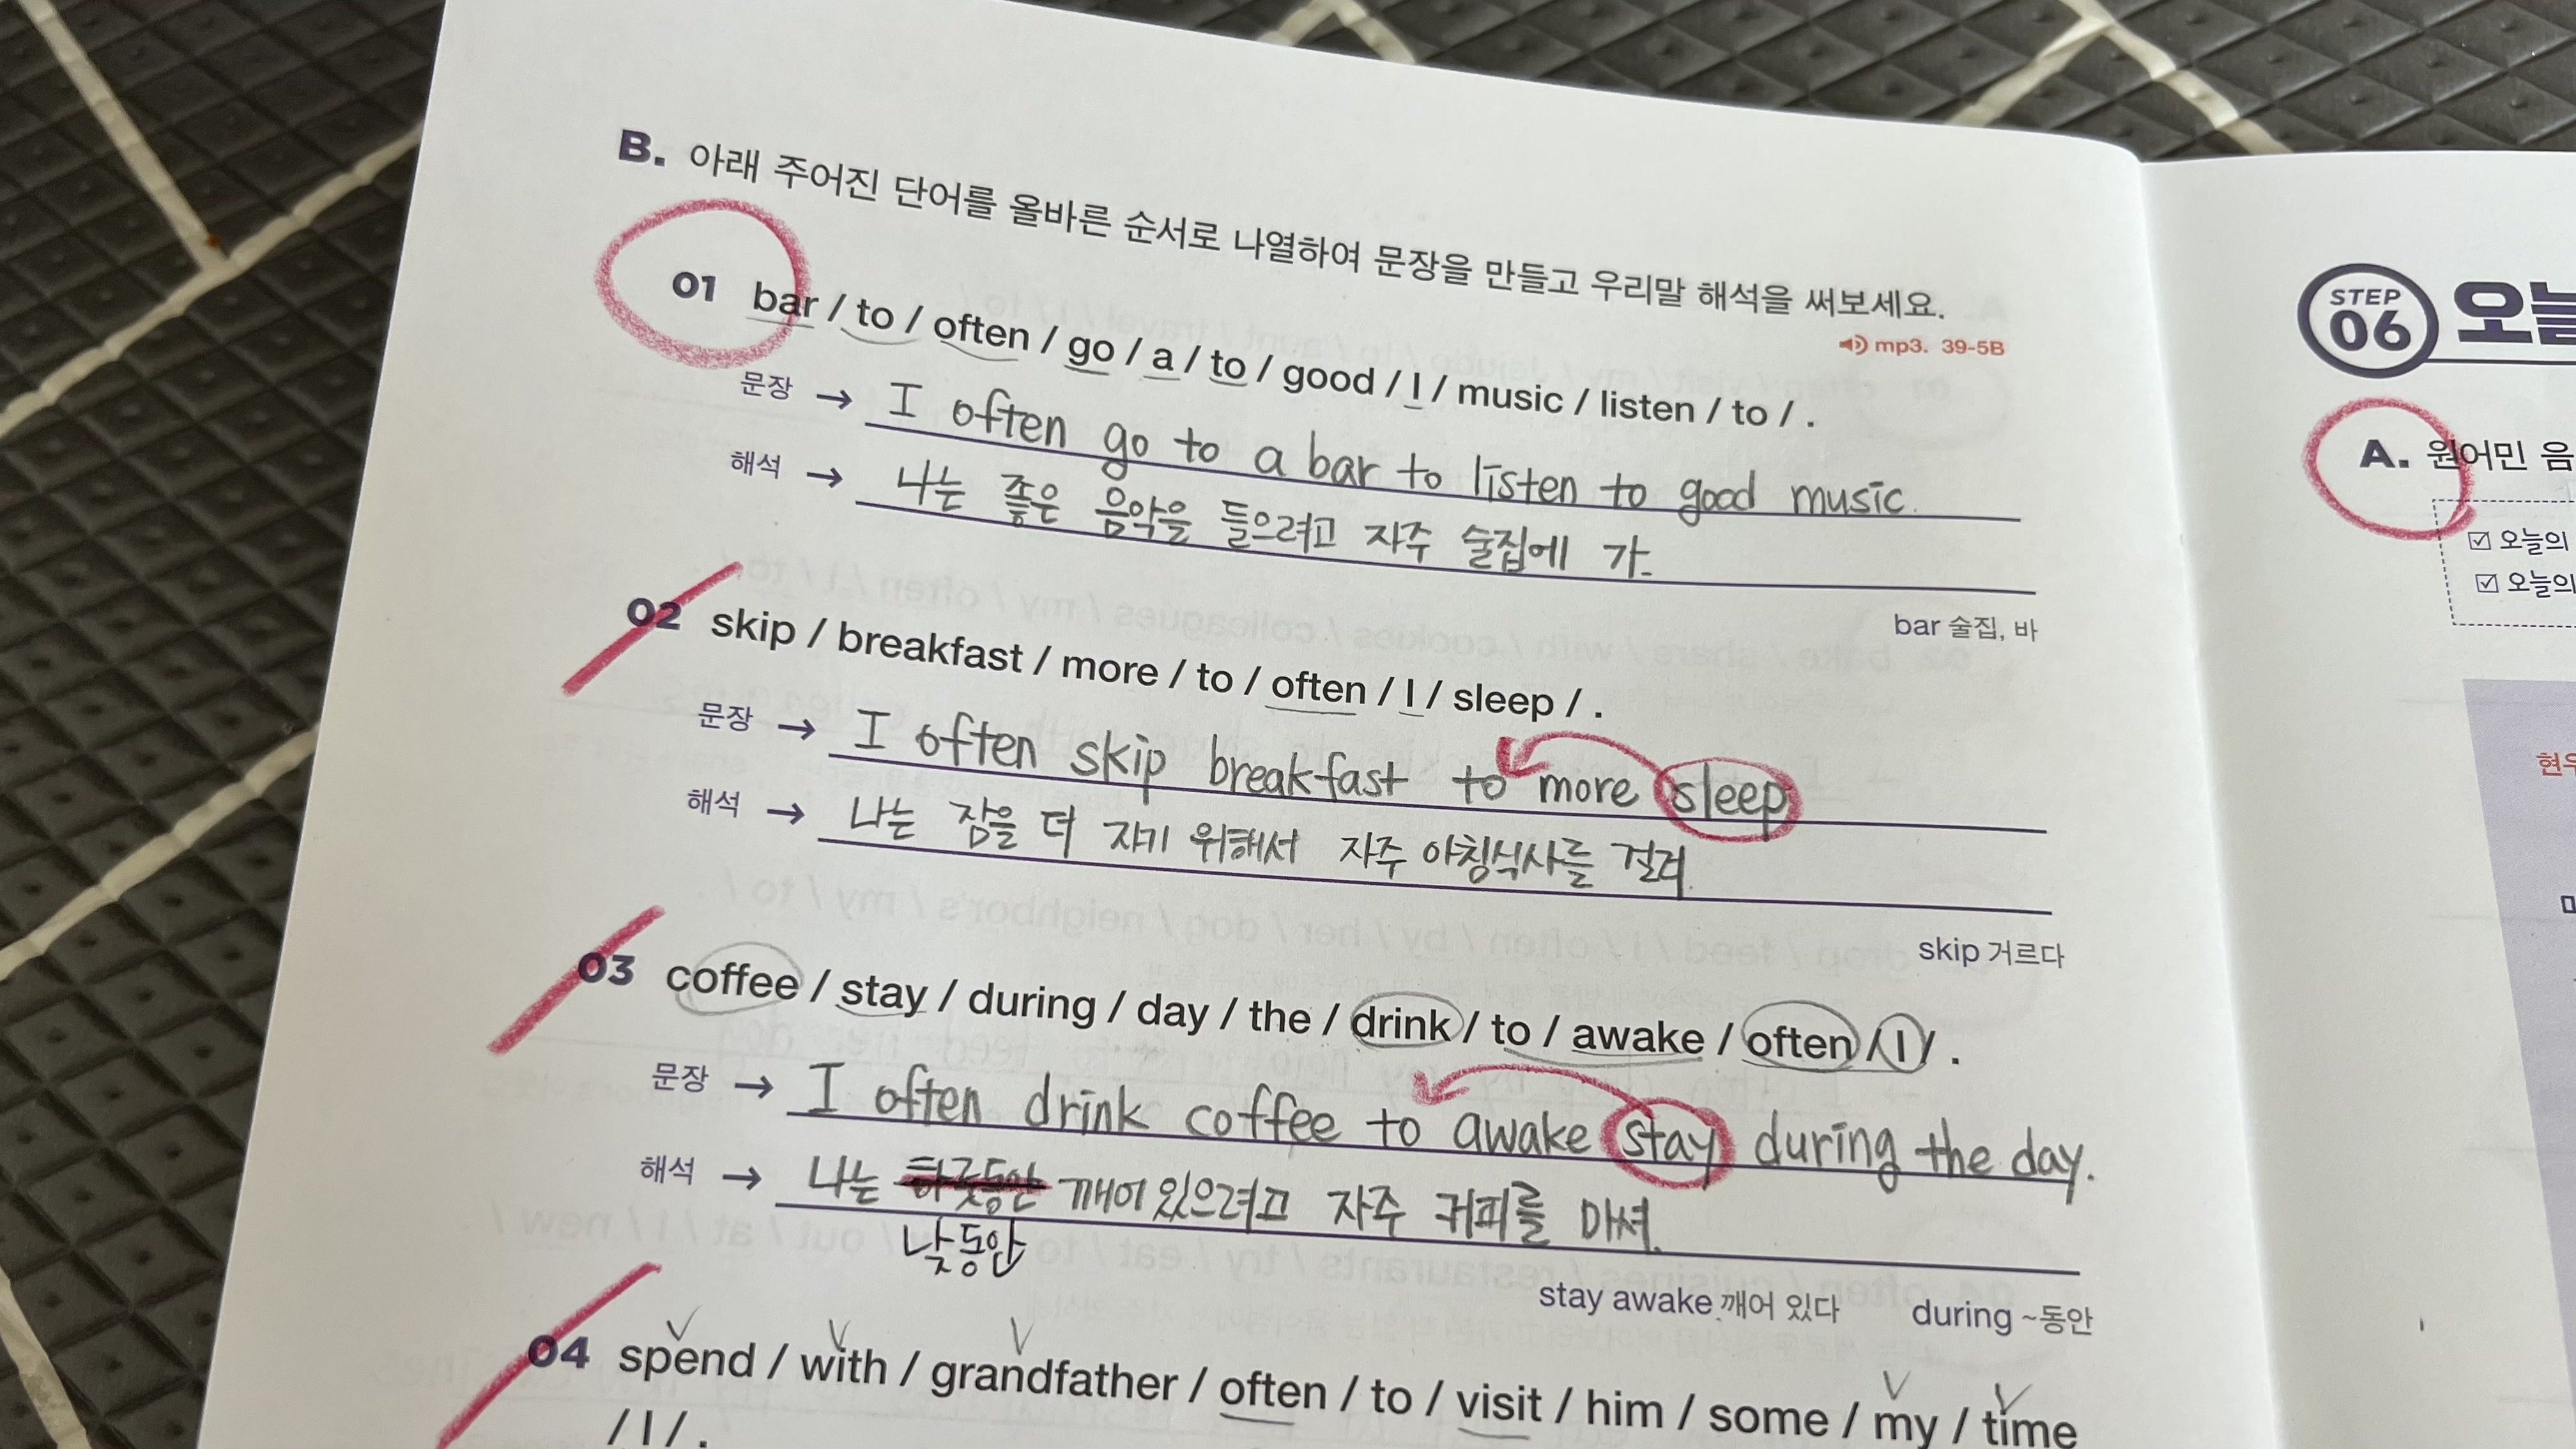 B. 아래 주어진 단어를 올바른 순서로 나열하여 문장을 만들고 우리말 해석을 써보세요.
mp3. 39-5B
01 bar / to / often / go / a / to / good / I / music / listen / to / .
문장 → I often go to a bar to listen to good music.
해석 → 나는 좋은 음악을 들으려고 자주 술집에 가.
bar 술집, 바
02 skip / breakfast / more / to / often / I / sleep / .
문장 → I often skip breakfast to more sleep
해석 → 나는 잠을 더 자기 위해서 자주 아침식사를 걸려.
skip 거르다
03 coffee / stay / during / day / the / drink / to / awake / often / I / .
문장 → I often drink coffee to awake stay during the day.
해석 → 나는 하룻동안 깨어 있으려고 자주 커피를 마셔.
낮동안
stay awake 깨어 있다 during ~동안
04 spend / with / grandfather / often / to / visit / him / some / my / time
/ I / .
STEP
06 오늘
A. 원어민 음
오늘의
오늘의
현우